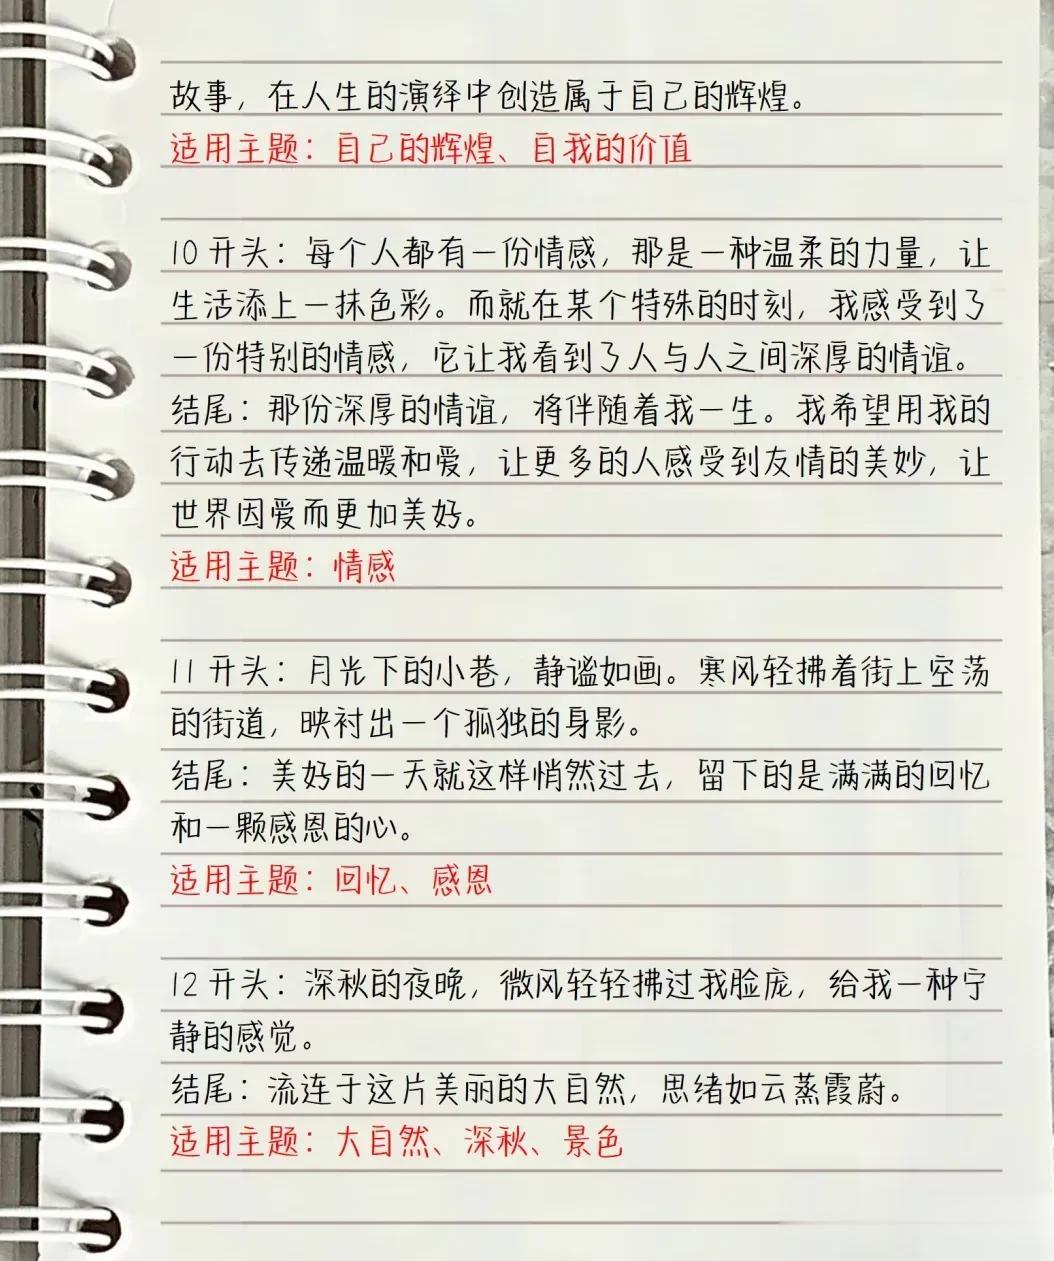 故事，在人生的演绎中创造属于自己的辉煌。
适用主题：自己的辉煌、自我的价值
10 开头：每个人都有一份情感，那是一种温柔的力量，让
生活添上一抹色彩。而就在某个特殊的时刻，我感受到了
一份特别的情感，它让我看到了人与人之间深厚的情谊。
结尾：那份深厚的情谊，将伴随着我一生。我希望用我的
行动去传递温暖和爱，让更多的人感受到友情的美妙，让
世界因爱而更加美好。
适用主题：情感
11 开头：月光下的小巷，静谧如画。寒风轻拂着街上空荡
的街道，映衬出一个孤独的身影。
结尾：美好的一天就这样悄然过去，留下的是满满的回忆
和一颗感恩的心。
适用主题：回忆、感恩
12 开头：深秋的夜晚，微风轻轻拂过我脸庞，给我一种宁
静的感觉。
结尾：流连于这片美丽的大自然，思绪如云蒸霞蔚。
适用主题：大自然、深秋、景色